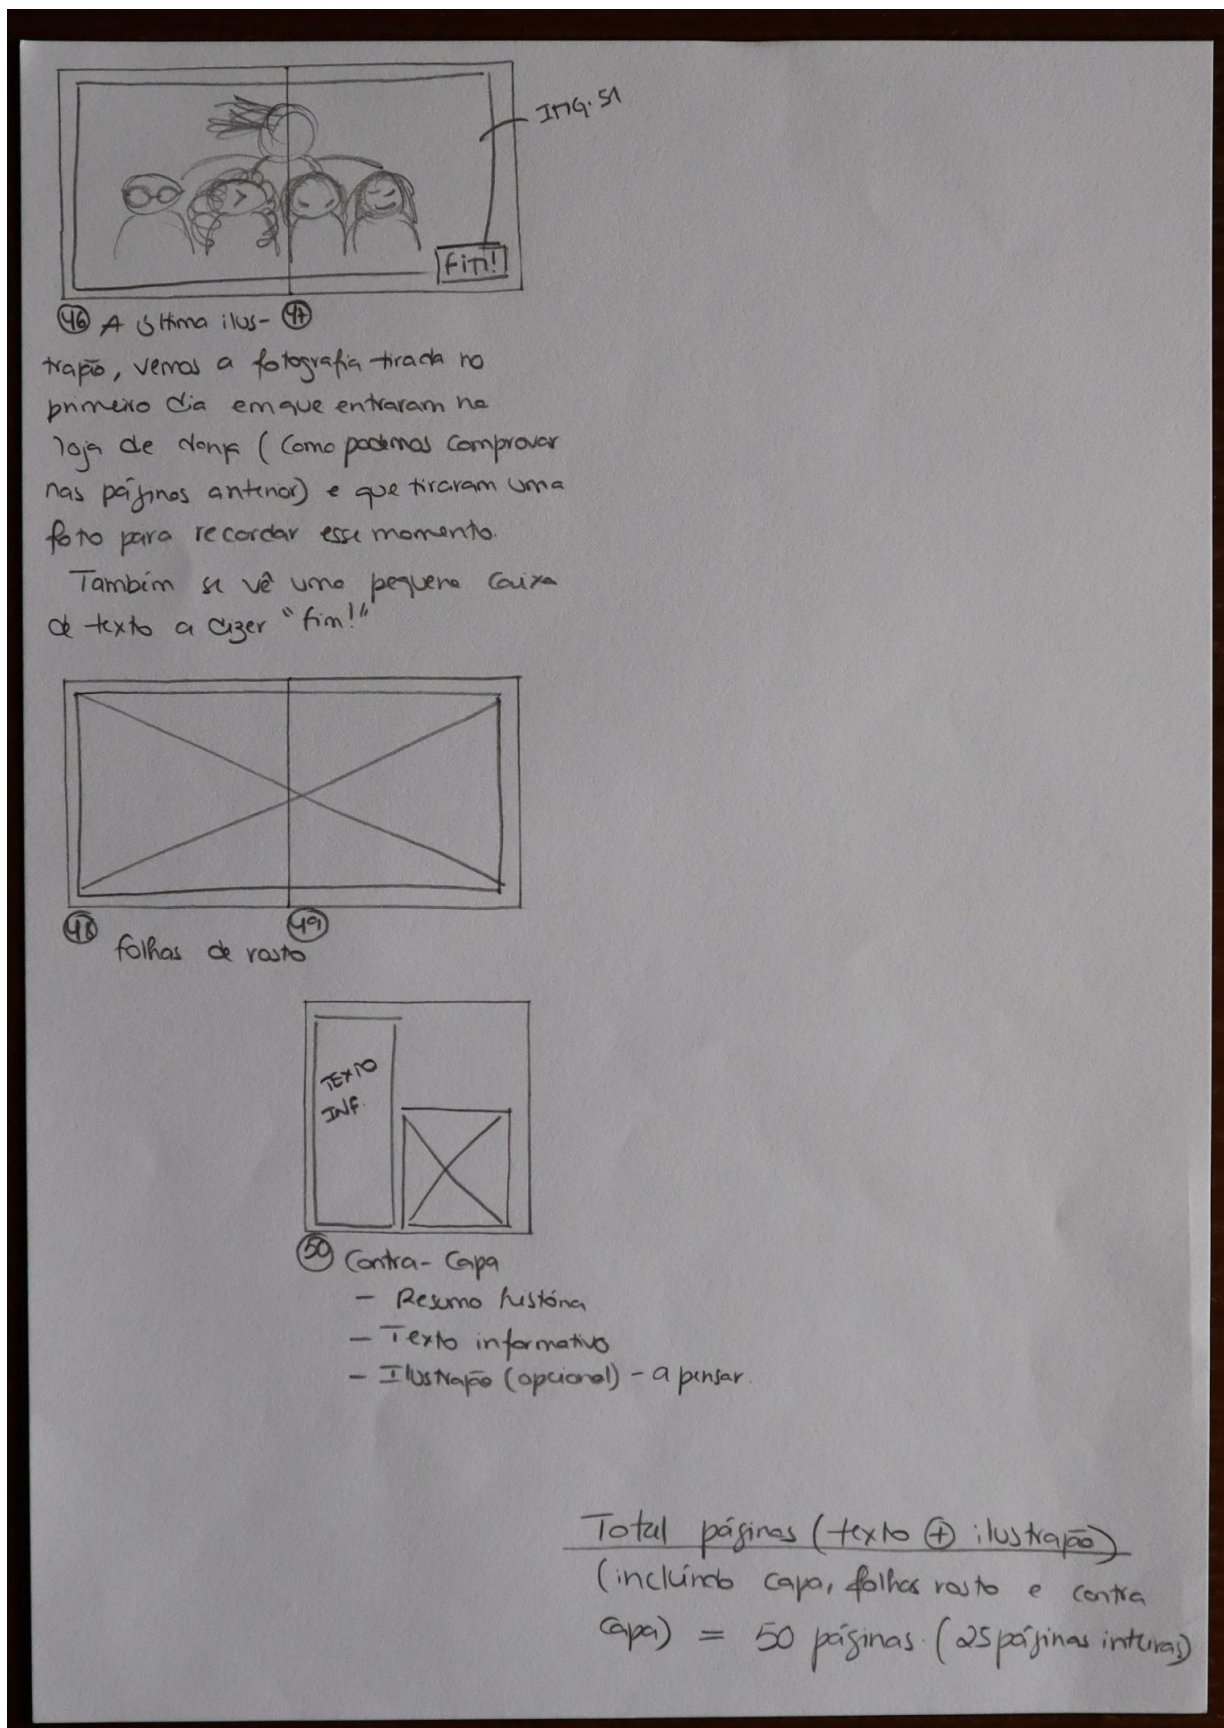 IMG. 51
FIM!
46 A última ilus- 47
tração, vemos a fotografia tirada no
primeiro dia em que entraram na
loja de (Como podemos comprovar
nas páginas anterior) e que tiraram uma
foto para recordar esse momento.
Também se vê uma pequena caixa
de texto a dizer "fim!"
48 49
folhas de rosto
TEXTO
INF.
50 Contra-Capa
- Resumo história
- Texto informativo
- Ilustração (opcional) - a pensar.
Total páginas (texto + ilustração)
(incluíndo capa, folhas rosto e contra
capa) = 50 páginas. (25 páginas inteiras)